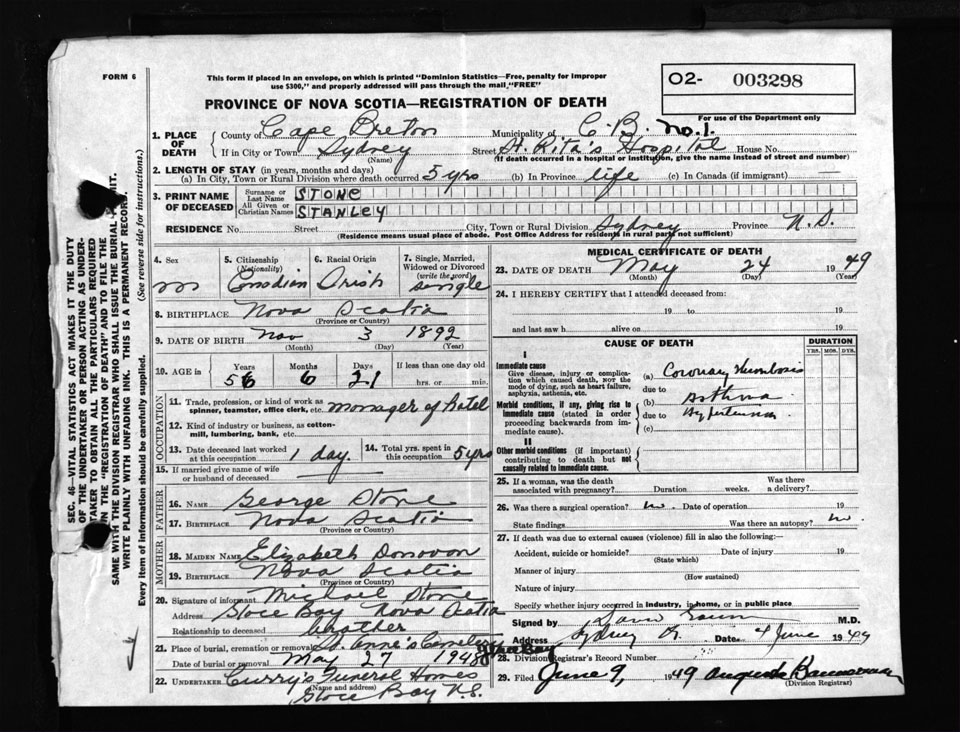 FORM 6
This form if placed in an envelope, on which is printed "Dominion Statistics—Free, penalty for improper
use $300," and properly addressed will pass through the mail "FREE"
O2- 003298
For use of the Department only
PROVINCE OF NOVA SCOTIA—REGISTRATION OF DEATH
1. PLACE OF DEATH
County of Cape Breton Municipality of C. B. No. 1.
If in City or Town Sydney Street St. Rita's Hospital House No.
(Name) (If death occurred in a hospital or institution, give the name instead of street and number)
2. LENGTH OF STAY (in years, months and days)
(a) In City, Town or Rural Division where death occurred 5 yrs (b) In Province life (c) In Canada (if immigrant) —
3. PRINT NAME OF DECEASED
Surname or Last Name STONE
All Given or Christian Names STANLEY
RESIDENCE No. Street City, Town or Rural Division Sydney Province N.S.
(Residence means usual place of abode. Post Office Address for residents in rural parts not sufficient)
4. Sex m
5. Citizenship (Nationality) Canadian
6. Racial Origin Irish
7. Single, Married, Widowed or Divorced (write the word) single
8. BIRTHPLACE Nova Scotia
(Province or Country)
9. DATE OF BIRTH Nov 3 1892
(Month) (Day) (Year)
10. AGE in Years 56 Months 6 Days 21 If less than one day old
hrs. or min.
OCCUPATION
11. Trade, profession, or kind of work as
spinner, teamster, office clerk, etc. manager of hotel
12. Kind of industry or business, as cotton-
mill, lumbering, bank, etc.
13. Date deceased last worked at this occupation 1 day.
14. Total yrs. spent in this occupation 5 yrs
15. If married give name of wife
or husband of deceased —
FATHER
16. NAME George Stone
17. BIRTHPLACE Nova Scotia
(Province or Country)
MOTHER
18. MAIDEN NAME Elizabeth Donovon
19. BIRTHPLACE Nova Scotia
(Province or Country)
20. Signature of informant Michael Stone
Address Glace Bay Nova Scotia
Relationship to deceased brother
21. Place of burial, cremation or removal St. Anne's Cemetery Glace Bay
Date of burial or removal May 27 1948
22. UNDERTAKER Curry's Funeral Homes
(Name and address)
Glace Bay N.S.
MEDICAL CERTIFICATE OF DEATH
23. DATE OF DEATH May 24 1949
(Month) (Day) (Year)
24. I HEREBY CERTIFY that I attended deceased from:
19 to 19
and last saw h alive on 19
CAUSE OF DEATH
DURATION
YRS. MOS. DYS.
I
Immediate cause
Give disease, injury or complica-
tion which caused death, not the
mode of dying, such as heart failure,
asphyxia, asthenia, etc.
(a) Coronary Thrombosis
due to
Morbid conditions, if any, giving rise to
immediate cause (stated in order
proceeding backwards from im-
mediate cause).
(b) Asthma
due to Hypertension
(c)
II
Other morbid conditions (if important)
contributing to death but not
causally related to immediate cause.
25. If a woman, was the death
associated with pregnancy? Duration weeks. Was there
a delivery?
26. Was there a surgical operation? no Date of operation 19
State findings Was there an autopsy? no
27. If death was due to external causes (violence) fill in also the following:
Accident, suicide or homicide? Date of injury 19
(State which)
Manner of injury
(How sustained)
Nature of injury
Specify whether injury occurred in industry, in home, or in public place
Signed by M.D.
Address Sydney Date 4 June 1949
28. Division Registrar's Record Number
29. Filed June 9, 1949
(Division Registrar)
SEC. 46—VITAL STATISTICS ACT MAKES IT THE DUTY
OF THE UNDERTAKER OR PERSON ACTING AS UNDER-
TAKER TO OBTAIN ALL THE PARTICULARS REQUIRED
IN THE "REGISTRATION OF DEATH" AND TO FILE THE
SAME WITH THE DIVISION REGISTRAR WHO SHALL ISSUE THE BURIAL PERMIT.
WRITE PLAINLY WITH UNFADING INK. THIS IS A PERMANENT RECORD.
Every item of information should be carefully supplied. (See reverse side for instructions.)